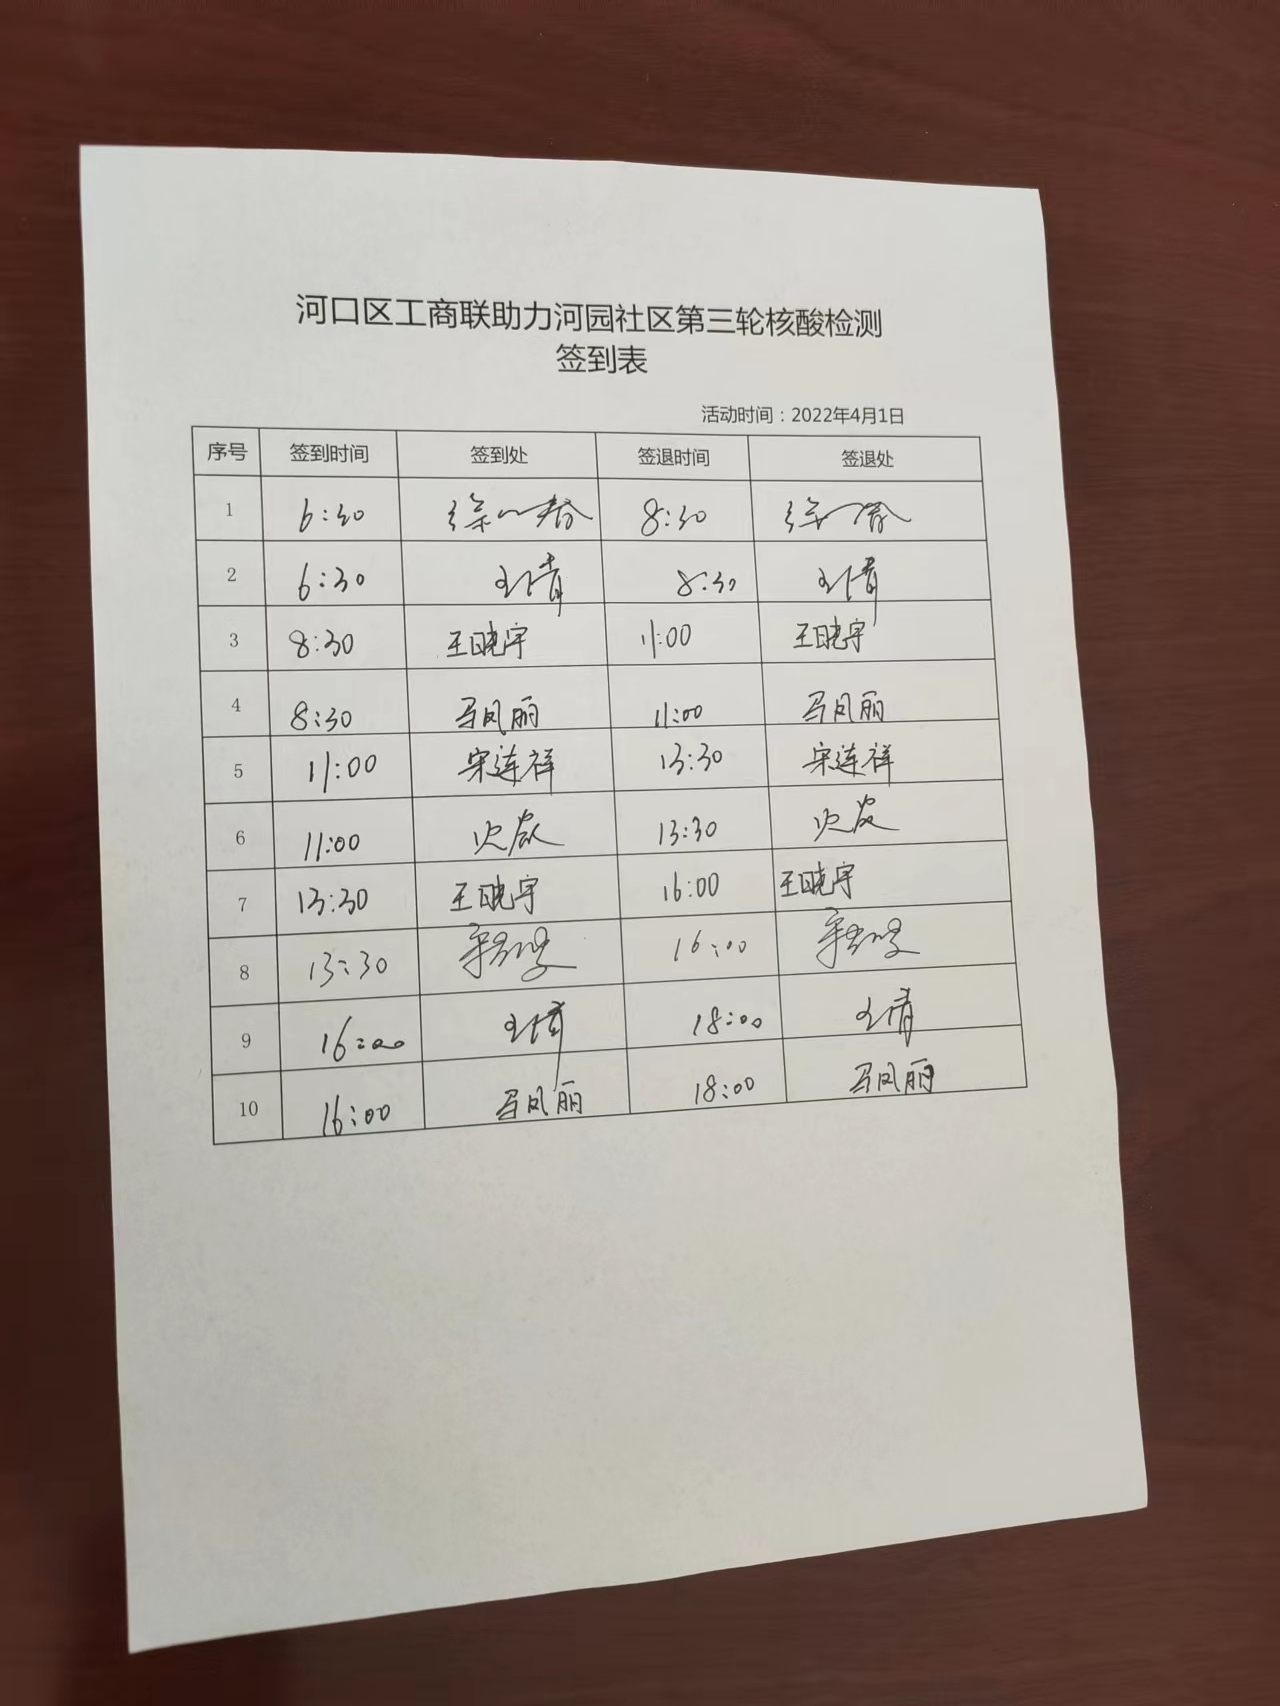 河口区工商联助力河园社区第三轮核酸检测
签到表
活动时间：2022年4月1日
序号 签到时间 签到处 签退时间 签退处
1 6:30 8:30
2 6:30 王倩 8:30 王倩
3 8:30 王晓宇 11:00 王晓宇
4 8:30 马凤丽 11:00 马凤丽
5 11:00 宋连祥 13:30 宋连祥
6 11:00 13:30
7 13:30 王晓宇 16:00 王晓宇
8 13:30 16:00
9 16:00 王倩 18:00 王倩
10 16:00 马凤丽 18:00 马凤丽